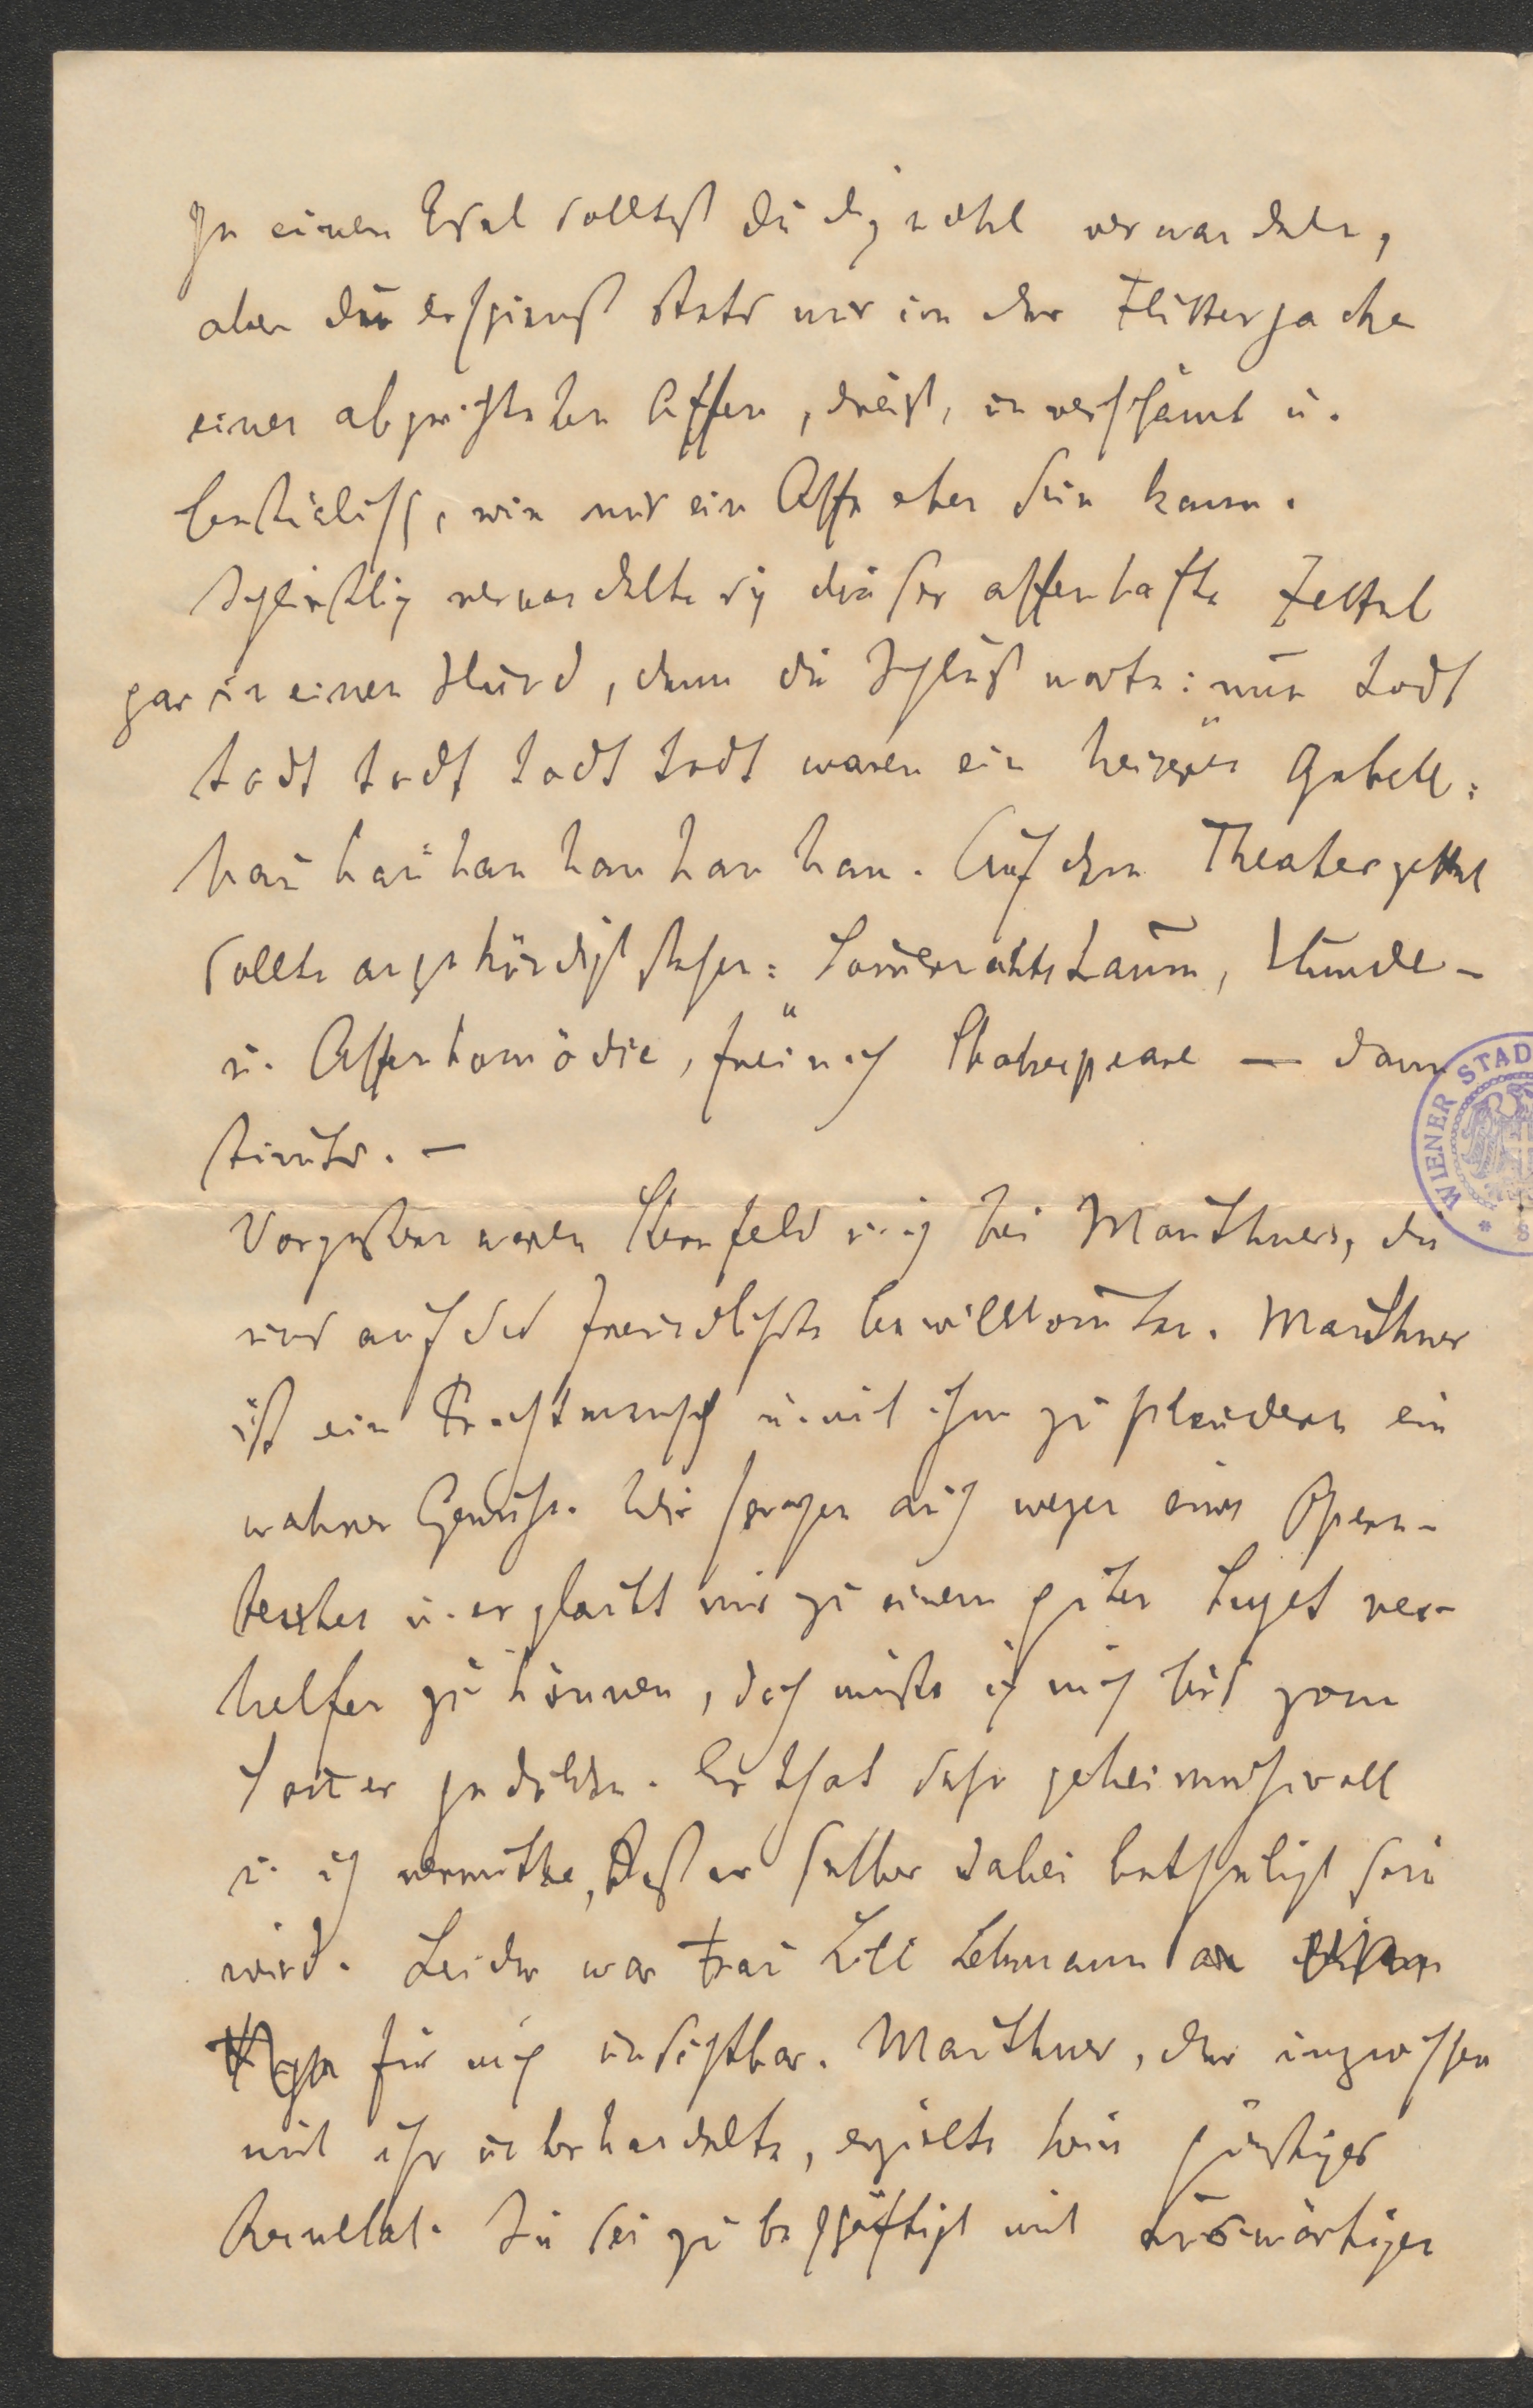 In einen Esel solltest du dich wohl verwandeln,
aber du erschienst stets nur in der Flitterjacke
eines abgerichteten Affen, dreist, unverschämt u.
bestialisch, wie nur ein Affe eben sein kann.
Schließlich verwandelte sich dieser affenhafte Zettel
gar in einen Hund, denn die Schlußworte: nun todt
todt todt todt todt waren ein heiseres Gebell:
hau hau hau hau hau hau. Auf dem Theaterzettel
sollte angekündigt stehen: Som̄ernachtstraum, Hunde-
u. Affenkomödie, frei nach Shakespeare — dann
stim̄ts. —
Vorgestern waren Sternfeld u. ich bei Mauthners, die
uns auf das freundlichste bewillkom̄ten. Mauthner
ist ein Prachtmensch u. mit ihm zu plaudern ein
wahrer Genuß. Wir sprachen auch wegen eines Opern-
textes u. er glaubt mir zu einem guten Sujet ver-
helfen zu können, doch müßte ich mich bis zum
Som̄er gedulden. Er that sehr geheimnißvoll
u. ich vermuthe, daß er selber dabei betheiligt sein
wird. Leider war Frau Lili Lehmann an
für mich unsichtbar. Mauthner, der inzwischen
mit ihr unterhandelte, erzielte kein günstiges
Resultat. Sie sei zu beschäftigt mit auswärtigen
WIENER STAD